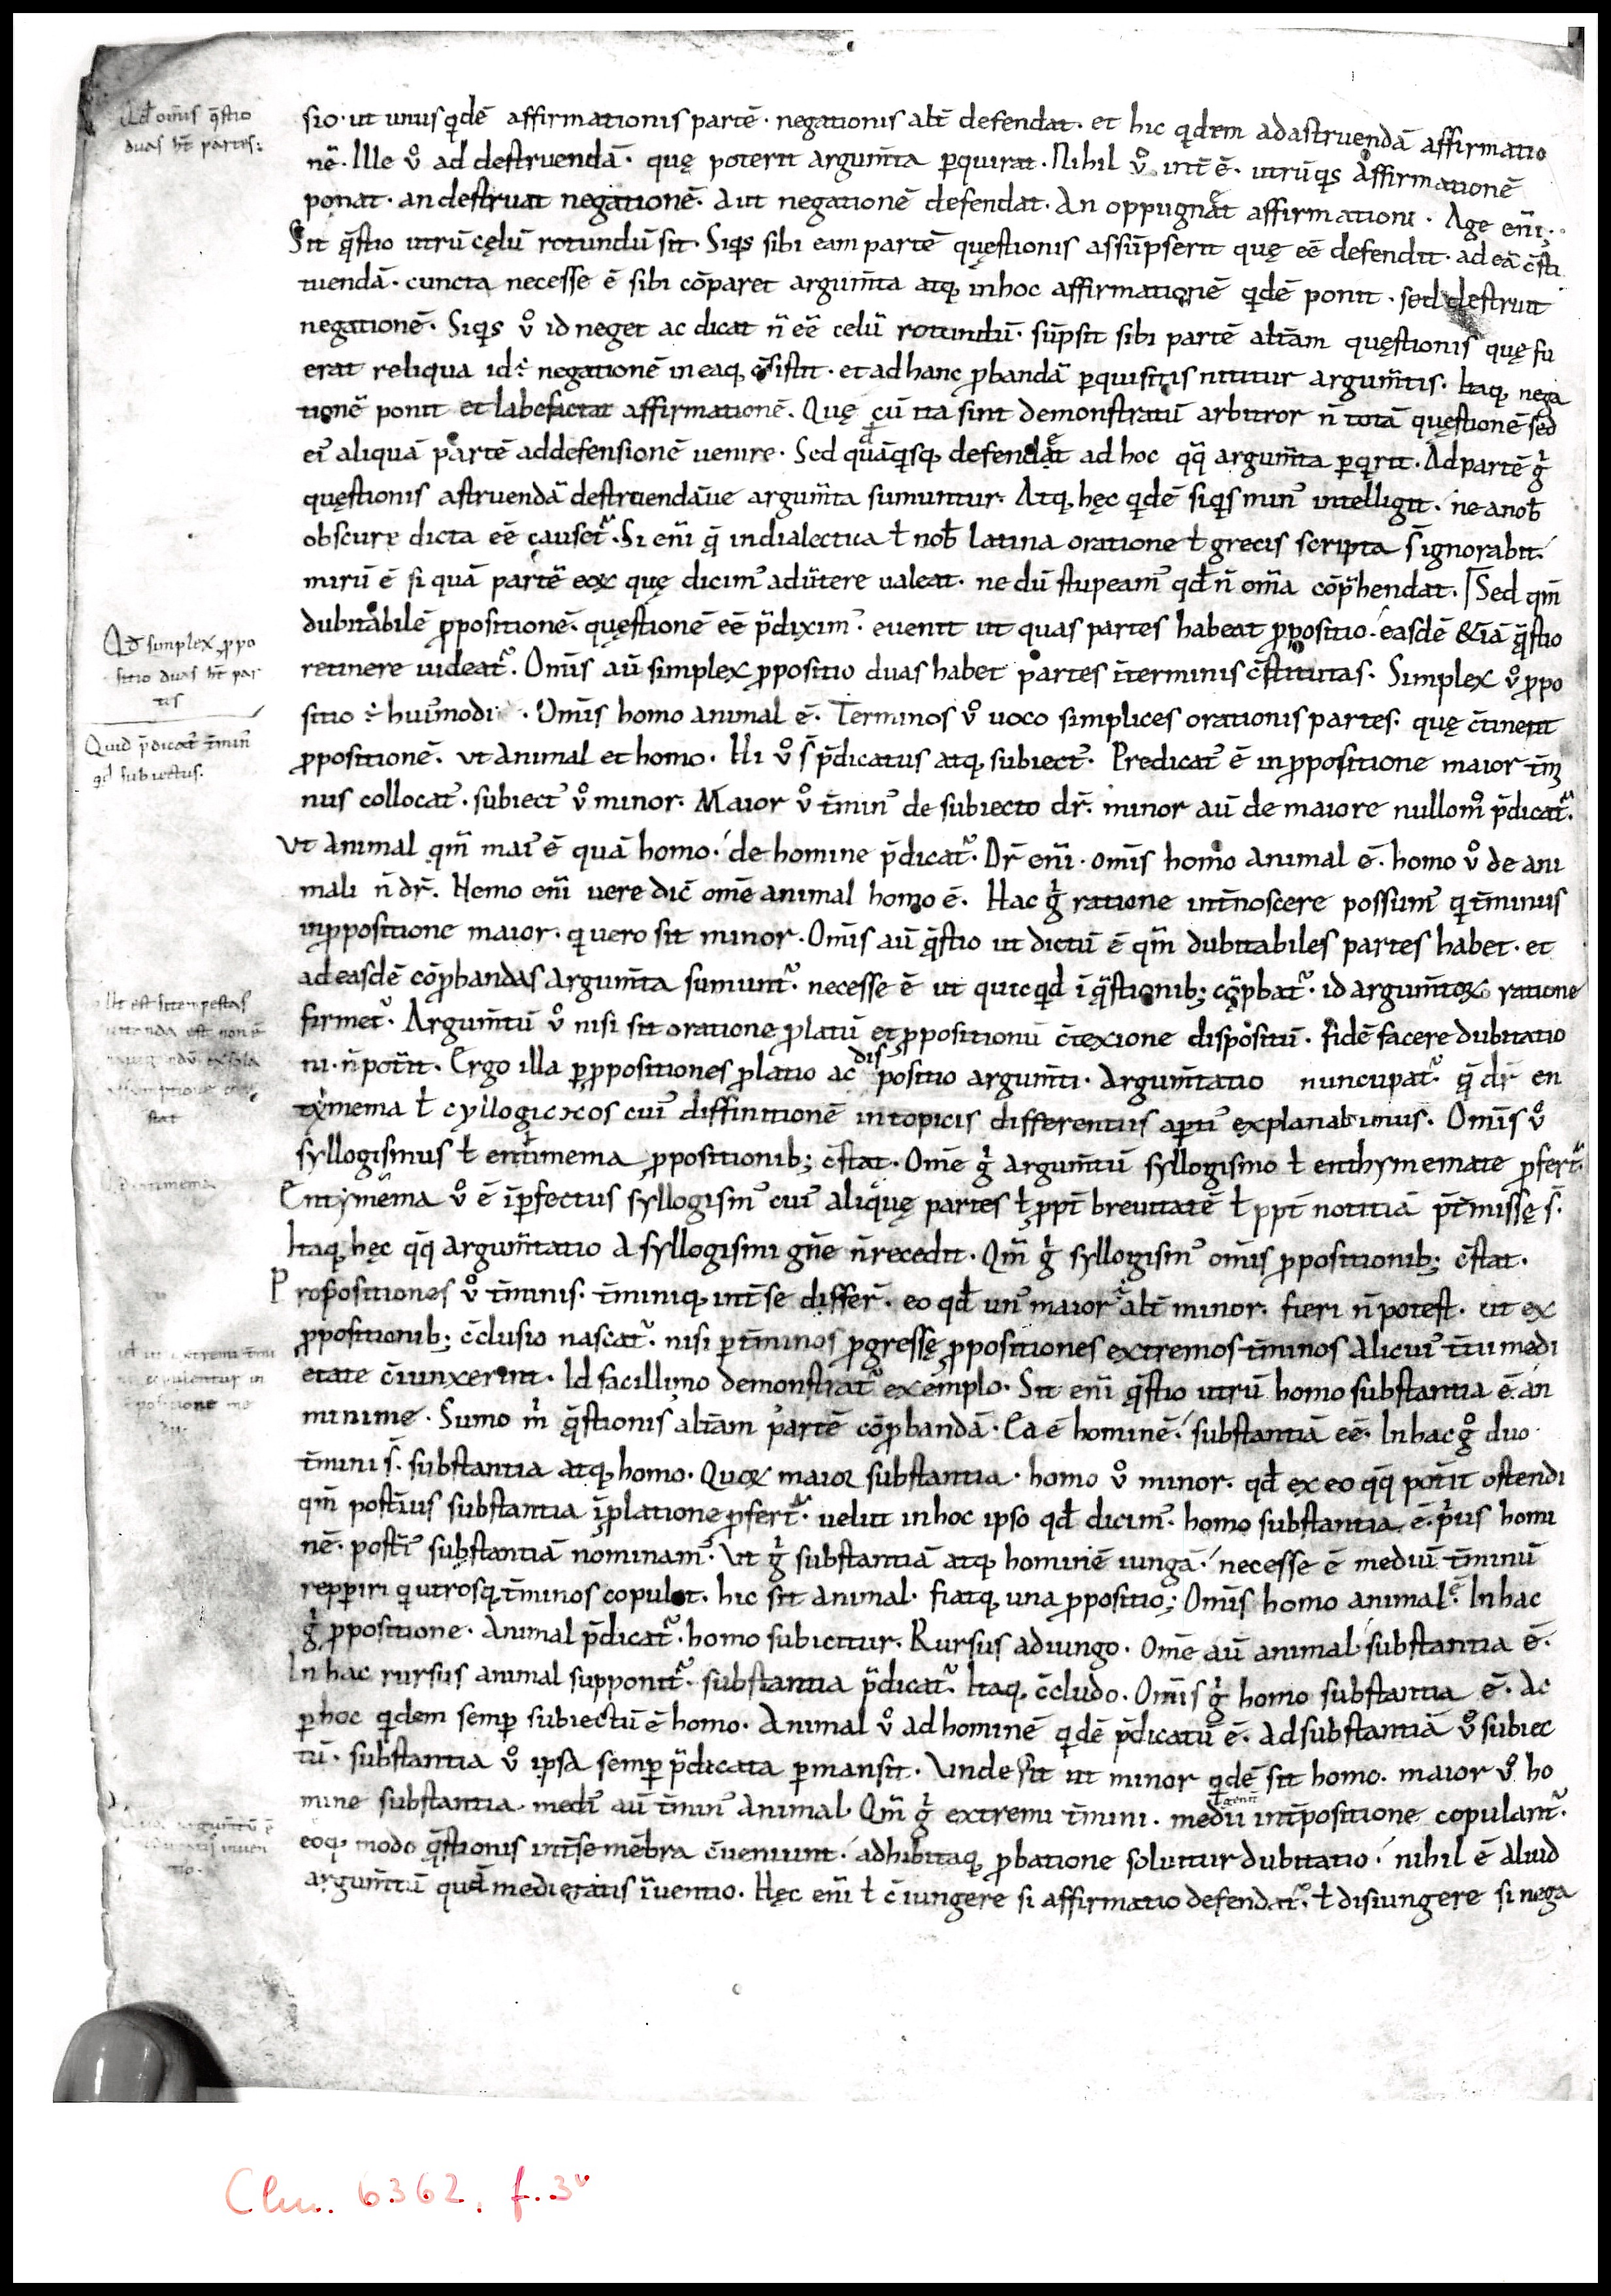 Qd omīs q̄stio
duas hñt partes:
sio· ut unus qdē affirmationis partē· negationis alt̄ defendat· et hic qdem ad astruendā affirmatio
nē· Ille v̊ ad destruendā· quę poterit argum̄ta p̱quirat· Nihil v̊ int̄ ē· utrū qs affirmationē
ponat· an destruat negationē· Aut negationē defendat· An oppugnet affirmationi· Age enī·
Sit q̄stio utrū cęlū rotundū sit· Siqs sibi eam partē quęstionis assūpserit quę eē defendit· ad eā c̄sti
tuendā· cuncta necesse ē sibi cōparet argum̄ta atq; in hoc affirmationē qdē ponit· sed destruit
negationē· Siqs v̊ id neget ac dicat n̄ eē celū rotundū· sūpsit sibi partē alt̄am quęstionis quę fu
erat reliqua id ÷ negationē in eaq; c̄sistit· et ad hanc p̱bandā p̱quisitis nititur argum̄tis· Itaq; nega
tionē ponit et labefactat affirmationē· Quę cū ita sint demonstratū arbitror n̄ totā quęstionē sed
ei᾽ aliquā partē ad defensionē uenire· Sed quā qsq; defendet ad hoc qq̄ argum̄ta p̱qrit· Ad partē g̊
quęstionis astruendā destruendāue argum̄ta sumuntur· Atq; hęc qdē siqs min᾽ intelligit· ne a nob̄
obscure dicta eē causet᾽· Si enī q̄ in dialectica ł nob̄ latina oratione ł grecis scripta s̄ ignorabit·
mirū ē si quā partē eoꝝ quę dicim᾽ aduertere ualeat· ne dū stupeam᾽ qd̄ n̄ om̄a cōp̄hendat· Sed qm̄
dubitabilē p̱positionē· quęstionē eē p̄dixim᾽· euenit ut quas partes habeat p̱positio· easdē &iā q̄stio
Qd̄ simplex p̱po
sitio duas hñt par
tis
retinere uideat᾽· Omīs aū simplex p̱positio duas habet partes īterminis c̄stitutas· Simplex v̊ p̱po
sitio ÷ hui᾽modi· Omīs homo animal ē· Terminos v̊ uoco simplices orationis partes· quę c̄tinent
Quid p̄dicat᾽ t̄min᾽
qd̄ subiectus·
p̱positionē· ut animal et homo· Hi v̊ s̄ p̄dicatus atq; subiect᾽· Predicat᾽ ē in p̱positione maior t̄mi
nus collocat᾽· subiect᾽ v̊ minor· Maior v̊ t̄min᾽ de subiecto dr̄· minor aū de maiore nullom̊ p̄dicat᾽·
Vt animal qm̄ mai᾽ ē quā homo· de homine p̄dicat᾽· Dr̄ enī· omīs homo animal ē· homo v̊ de ani
mali n̄ dr̄· Nemo enī uere dic̄ omē animal homo ē· Hac g̊ ratione int̄noscere possum᾽ q t̄minus
in p̱positione maior· q uero sit minor· Omīs aū q̄stio ut dictū ē qm̄ dubitabiles partes habet· et
ad easdē cōp̱bandas argum̄ta sumunt᾽· necesse ē ut quicqd ī q̄stionib; cōp̱bat᾽· id argum̄toꝝ ratione
Ut est si tempestas
firmet᾽· Argum̄tū v̊ nisi sit oratione p̱latū et p̱positionū c̄texione dispositū· fidē facere dubitatio
ni· n̄ pot̄it· Ergo illa p̱ p̱positiones p̱latio ac dispositio argum̄ti· argum̄tatio nuncupat᾽· q̄ dr̄ en
stat
tymema ł cyllogicxos cui᾽ diffinitionē in topicis differentiis ap̱ti᾽ explanabimus· Omīs v̊
syllogismus ł entimema p̱positionib; c̄stat· Omē g̊ argum̄tū syllogismo ł enthymemate p̱fert᾽·
Entymēma v̊ ē īp̱fectus syllogism᾽ cui᾽ aliquę partes ł p̱pt̄ breuitatē ł ppt̄ notitiā p̄t̄missę s̄·
Itaq; hęc qq̄ argum̄tatio a syllogismi gn̄e n̄ recedit· Qm̄ g̊ syllogism᾽ omīs p̱positionib; c̄stat·
Propositiones v̊ t̄minis· t̄miniq; int̄ se differ̄· eo qd̄ un᾽ maior alt̄ minor· fieri n̄ potest· ut ex
p̱positionib; c̄clusio nascat᾽· nisi p̱ t̄minos p̱gressę p̱positiones extremos t̄minos alicui᾽ t̄tii medi
etate c̄iunxerint· Id facillimo demonstrat᾽ exemplo· Sit enī q̄stio utrū homo substantia ē· an
minime· Sumo m̊ q̄stionis alt̄am partē cōp̱bandā· Ea ē hominē· substantiā eē· In hac g̊ duo
t̄mini s̄· substantia atq; homo· Quoꝝ maior substantia· homo v̊ minor· qd̄ ex eo qq̄ pot̄it ostendi
qm̄ post̄ius substantia ī p̱latione p̱fert᾽· uelut in hoc ipso qd̄ dicim᾽· homo substantia ē· p᾽us homi
nē· post̄i᾽ substantiā nominam᾽· Vt g̊ substantiā atq; hominē iungā· necesse ē mediū t̄minū
repperiri q utrosq; t̄minos copulet· hic sit animal· fiatq; una p̱positio; Omīs homo animal ē· In hac
g̊ p̱positione· Animal p̄dicat᾽· homo subicitur· Rursus adiungo· Omē aū animal substantia ē·
In hac rursus animal supponit᾽· substantia p̄dicat᾽· Itaq; c̄cludo· Omīs g̊ homo substantia ē· Ac
p̱ hoc qdem semp̱ subiectū ē homo· Animal v̊ ad hominē qdē p̄dicatū ē· ad substantiā v̊ subiec
tū· substantia v̊ ipsa semp̱ p̄dicata p̱mansit· Vnde fit ut minor qdē sit homo· maior v̊ ho
mine substantia· medi᾽ aū t̄min᾽ animal· Qm̄ g̊ extremi t̄mini· medii int̄positione copulant᾽·
eoq; modo q̄stionis int̄ se mēbra c̄ueniunt· adhibitaq; p̱batione soluitur dubitatio· nihil ē aliud
argum̄tū quā medietatis īuentio· Hęc enī ł c̄iungere si affirmatio defendat᾽· ł disiungere si nega
Clm. 6362, f. 3v